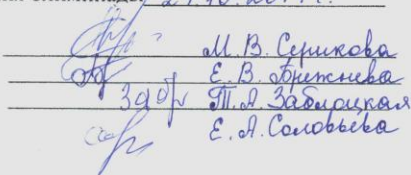 М. В. Серикова
Е. В. Брежнева
Т. А. Заблоцкая
Е. А. Соловьёва